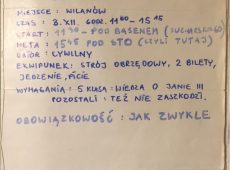 MIEJSCE : WILANÓW
CZAS : 8.XII. GODZ. 11⁰⁰ - 15¹⁵
START : 11³⁰ - POD BASENEM (SUCHARSKIEGO)
META : 15⁴⁵ POD STO (CZYLI TUTAJ)
UBIÓR : CYWILNY
EKWIPUNEK : STRÓJ OBRZĘDOWY, 2 BILETY,
JEDZENIE, PICIE
WYMAGANIA : 5 KLASA : WIEDZA O JANIE III
POZOSTALI : TEŻ NIE ZASZKODZI.
OBOWIĄZKOWOŚĆ : JAK ZWYKLE